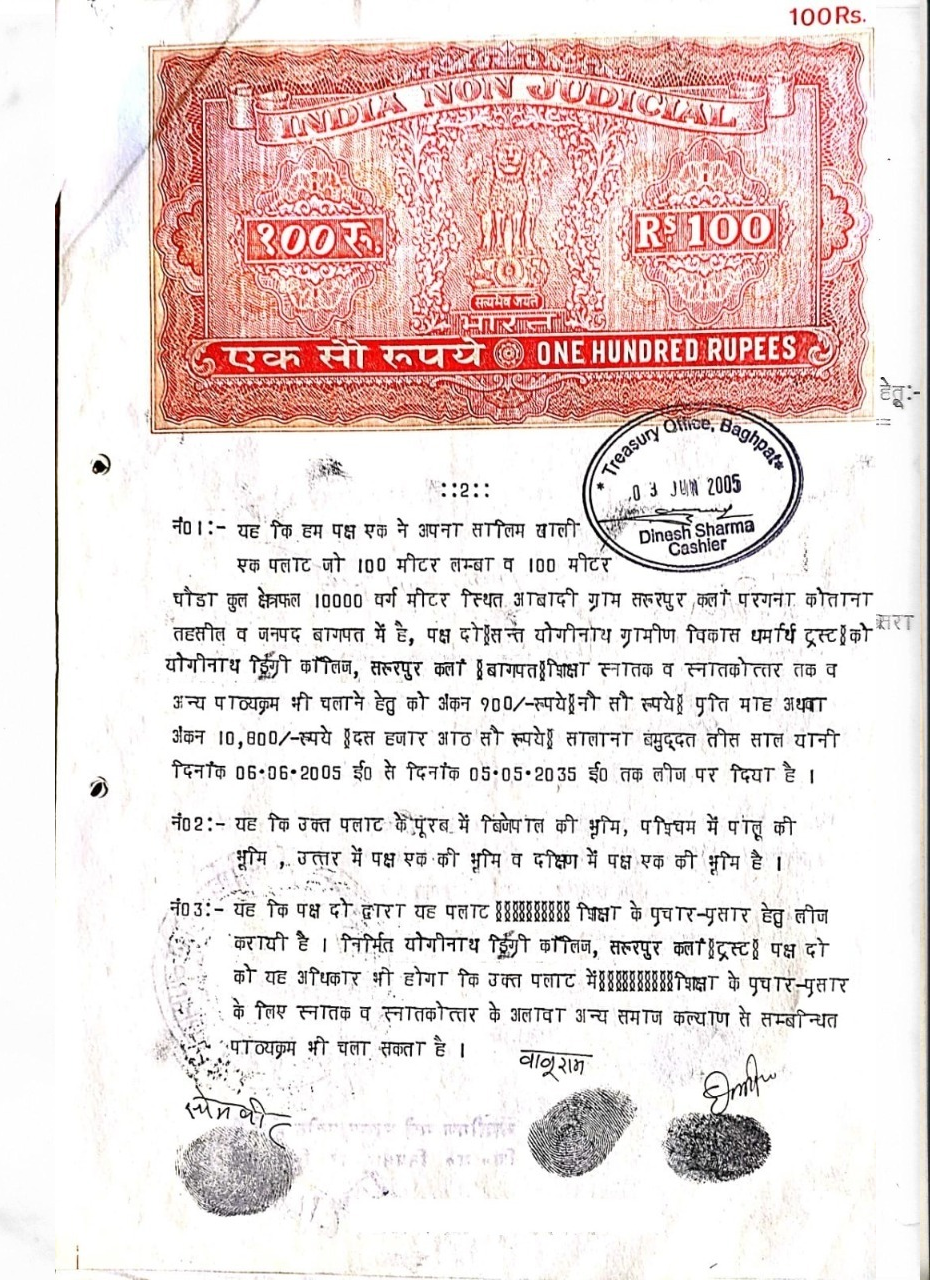 100Rs.
INDIA NON JUDICIAL
१00 रु.
Rs 100
सत्यमेव जयते
भारत
एक सौ रूपये
ONE HUNDRED RUPEES
हेतू:-
Treasury Office, Baghpat
03 JUN 2005
Dinesh Sharma
Cashier
::2::
नं01:- यह कि हम पक्ष एक ने अपना सालिम खाली
एक पलाट जो 100 मीटर लम्बा व 100 मीटर
चौडा कुल क्षेत्रफल 10000 वर्ग मीटर स्थित आबादी ग्राम सरूरपुर कलां परगना कोताना
तहसील व जनपद बागपत में है, पक्ष दो सन्त योगीनाथ ग्रामीण विकास धर्मार्थ ट्रस्ट को
योगीनाथ डिग्री कॉलिज, सरूरपुर कलां बागपत शिक्षा स्नातक व स्नातकोत्तर तक व
अन्य पाठ्यक्रम भी चलाने हेतु को अंकन 900/-रूपये नौ सौ रूपये प्रति माह अथवा
अंकन 10,800/-रूपये दस हजार आठ सौ रूपये सालाना बमुद्दत तीस साल यानी
दिनांक 06·06·2005 ई0 से दिनांक 05·05·2035 ई0 तक लीज पर दिया है ।
नं02:- यह कि उक्त पलाट के पूरब में बिजेपाल की भूमि, पश्चिम में पालू की
भूमि , उत्तर में पक्ष एक की भूमि व दक्षिण में पक्ष एक की भूमि है ।
नं03:- यह कि पक्ष दो द्वारा यह पलाट शिक्षा के प्रचार-प्रसार हेतु लीज
करायी है । निर्मित योगीनाथ डिग्री कॉलिज, सरूरपुर कलां ट्रस्ट पक्ष दो
को यह अधिकार भी होगा कि उक्त पलाट में शिक्षा के प्रचार-प्रसार
के लिए स्नातक व स्नातकोत्तर के अलावा अन्य समाज कल्याण से सम्बन्धित
पाठ्यक्रम भी चला सकता है ।
बाबूराम